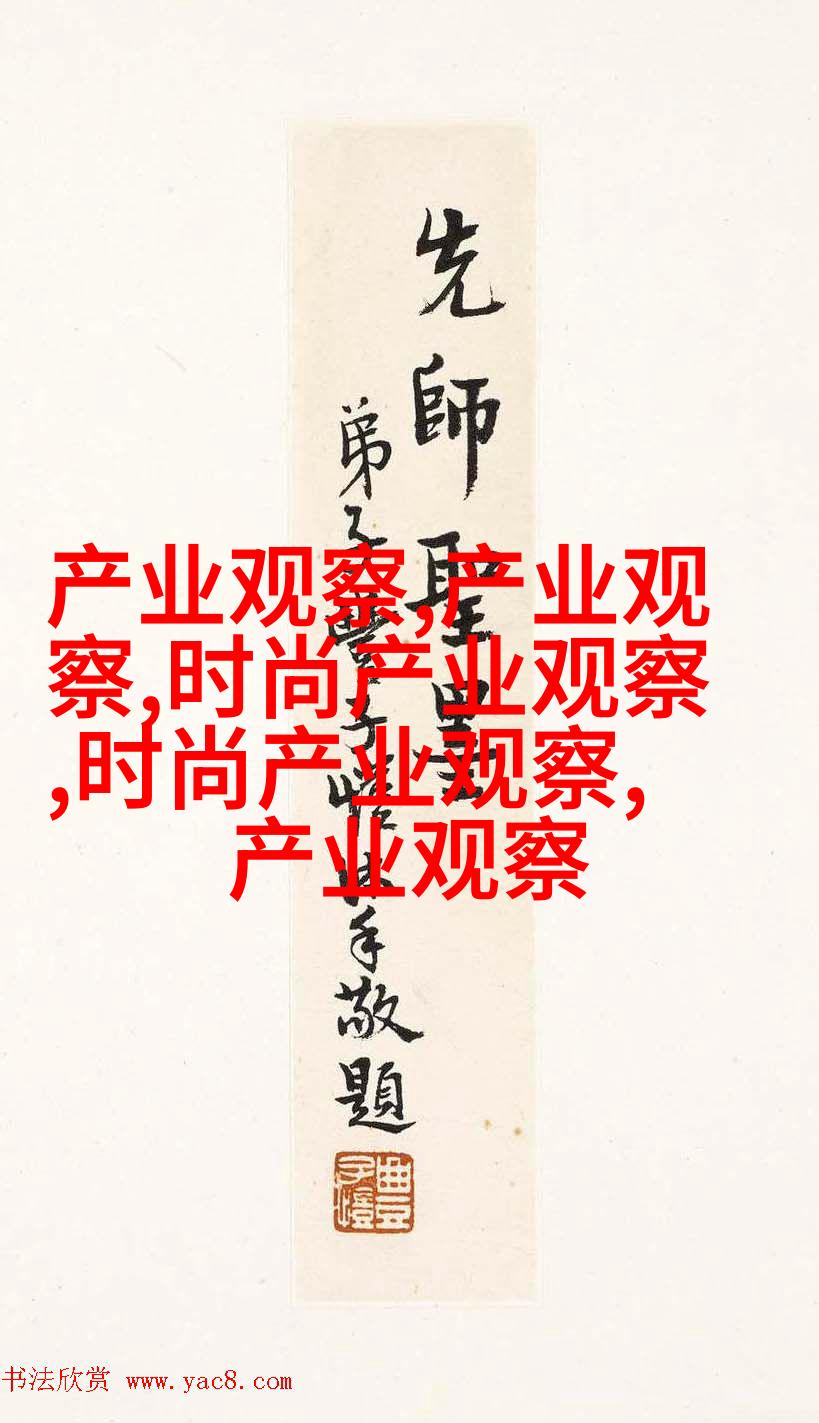 先師聖墨
弟子豐子愷沐手敬題
豐子愷
产业观察,产业观
察,时尚产业观察
,时尚产业观察,
产业观察
书法欣赏 www.yac8.com